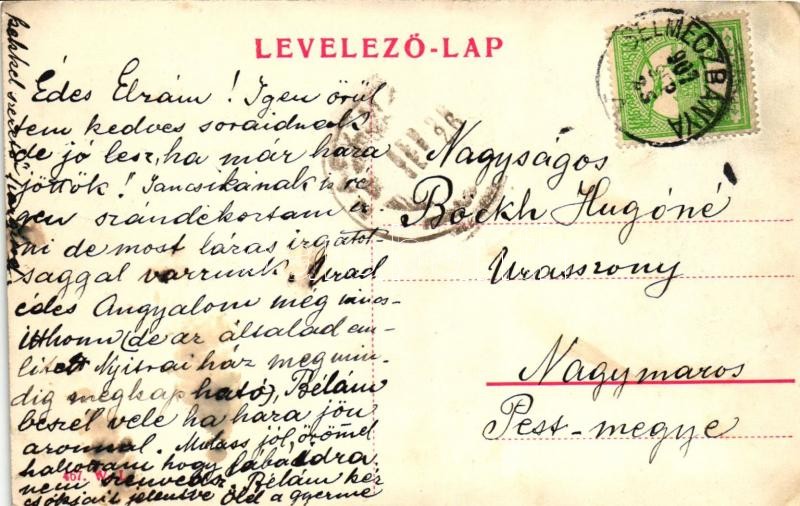 LEVELEZŐ-LAP
SELMECZBÁNYA
907
Édes Elzám! Igen örül
tem kedves soraidnak
de jó lesz, ha már haza
jöttök! Jancsikának is re
gen szándékoztam ir
ni de most lázas izgatot
sággal varrunk. Urad
édes Angyalom még
itthonn (de az általad em-
litett Nyitrai ház megmin
dig megkap ható), Bélám
beszél vele ha haza jön
azonnal. Mulass jól, örömmel
hallottam hogy lábaidra
nem szenvedsz. Bélám kéz
csókjait jelentve öled a gyerme
kekkel szerető
Nagyságos
Böckh Hugóné
Urasszony
Nagymaros
Pest-megye
467. W. L.